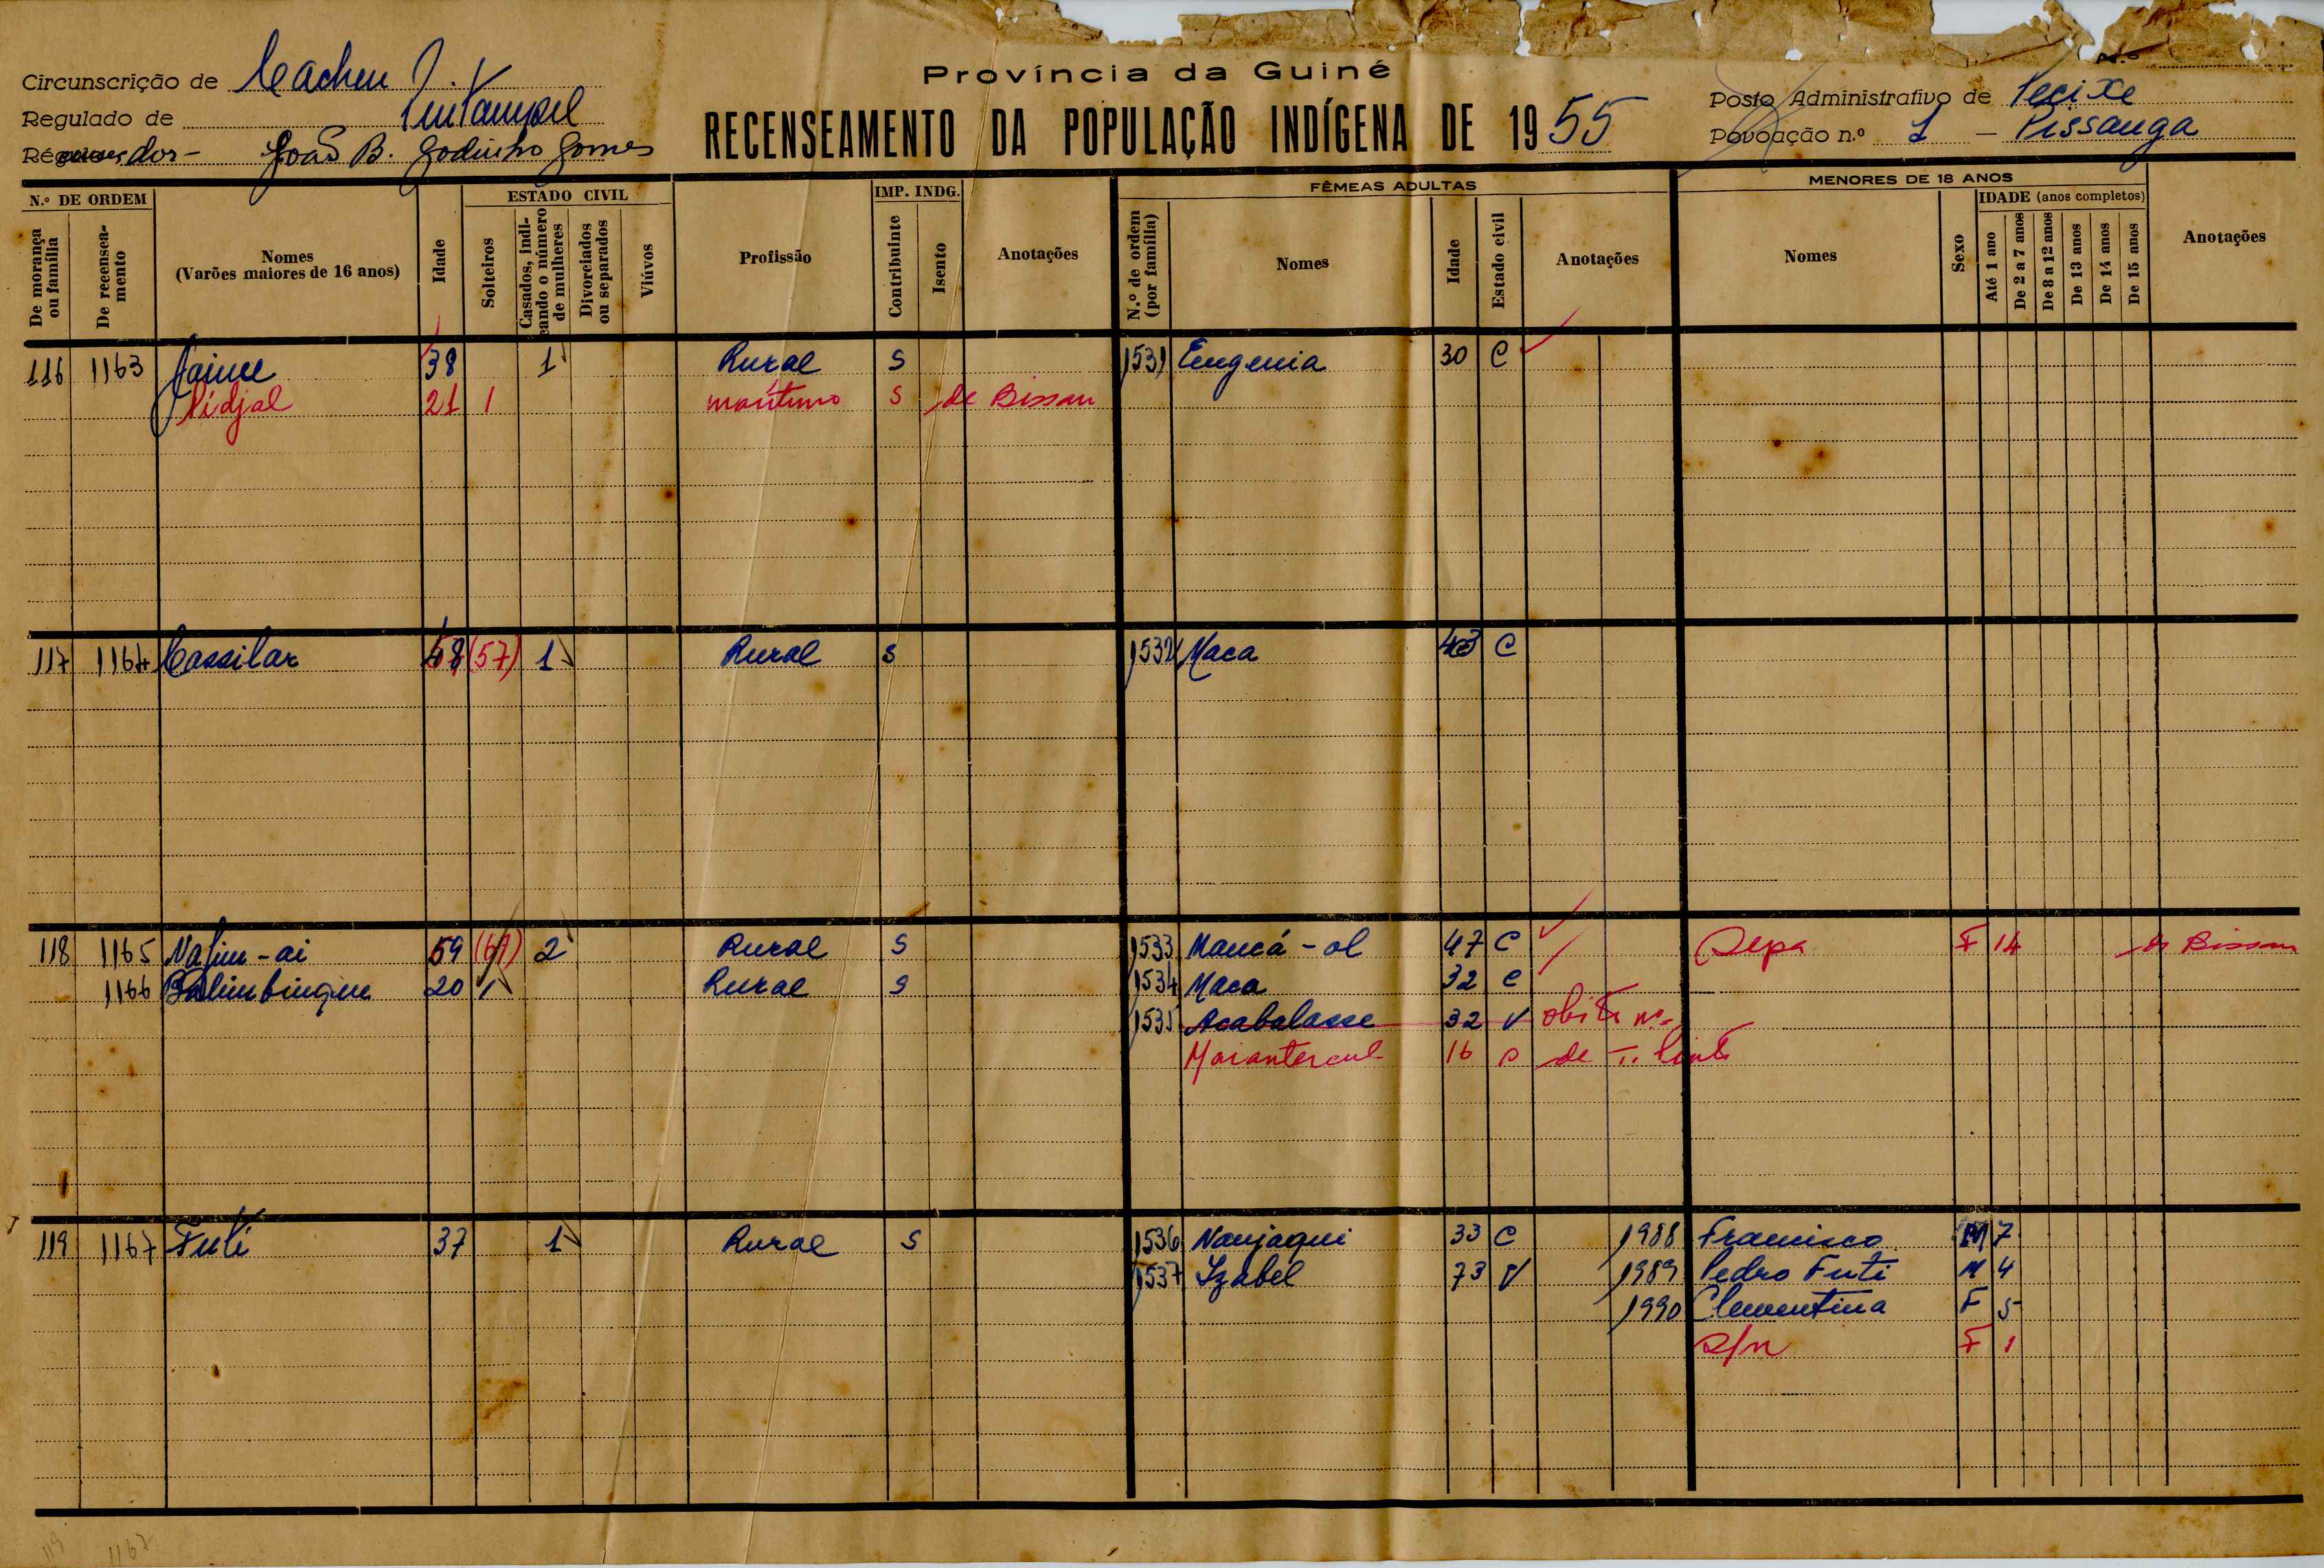 Província da Guiné
RECENSEAMENTO DA POPULAÇÃO INDÍGENA DE 1955
Circunscrição de Cacheu
Regulado de
João B. Godinho Gomes
N.º
Posto Administrativo de Pecixe
Povoação n.º 1 - Pissanga
N.º DE ORDEM
De morança ou família
De recenseamento
Nomes
(Varões maiores de 16 anos)
Idade
ESTADO CIVIL
Solteiros
Casados, indicando o número de mulheres
Divorciados ou separados
Viúvos
Profissão
IMP. INDG.
Contribuinte
Isento
Anotações
FÊMEAS ADULTAS
N.º de ordem (por família)
Nomes
Idade
Estado civil
Anotações
MENORES DE 18 ANOS
Nomes
Sexo
IDADE (anos completos)
Até 1 ano
De 2 a 7 anos
De 8 a 12 anos
De 13 anos
De 14 anos
De 15 anos
Anotações
116 1163 Jaime 38 1 Rural S 1531 Eugenia 30 C
Pidjal 21 1 marítimo S de Bissau
117 1164 Cassilar (57) 1 Rural S 1532 Maca 43 C
118 1165 Nafim-ai 59 2 Rural S 1533 Mancá-ol 47 C Sepa F 14 de Bissau
1166 20 1 Rural S 1534 Maca 32 C
1535 Acabalasse 32 V obito nº
16 S de
119 1167 Futi 37 1 Rural S 1536 Nanjaqui 33 C 1988 Francisco M 7
1537 Izabel 73 V 1989 Pedro Futi M 4
1990 Clementina F 5
s/n F 1
119 1167